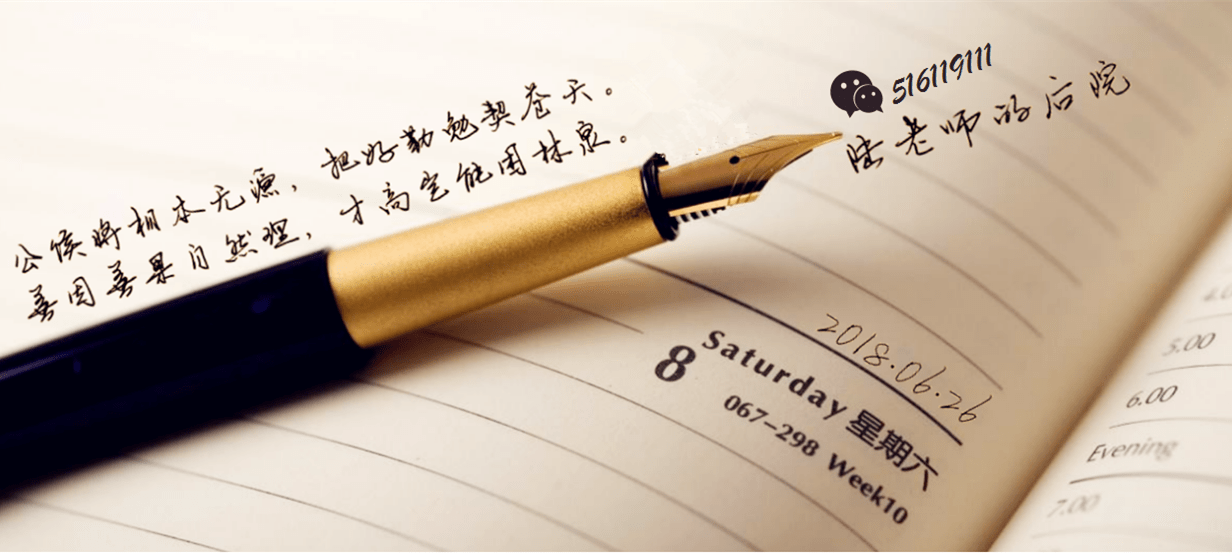 公侯将相本无源，把好勤勉契苍天。
善因善果自然理，才高岂能困林泉。
516119111
陆老师的后院
2018.06.26
8
Saturday 星期六
067-298 Week10
4.0
5.00
6.00
Evening
7.00